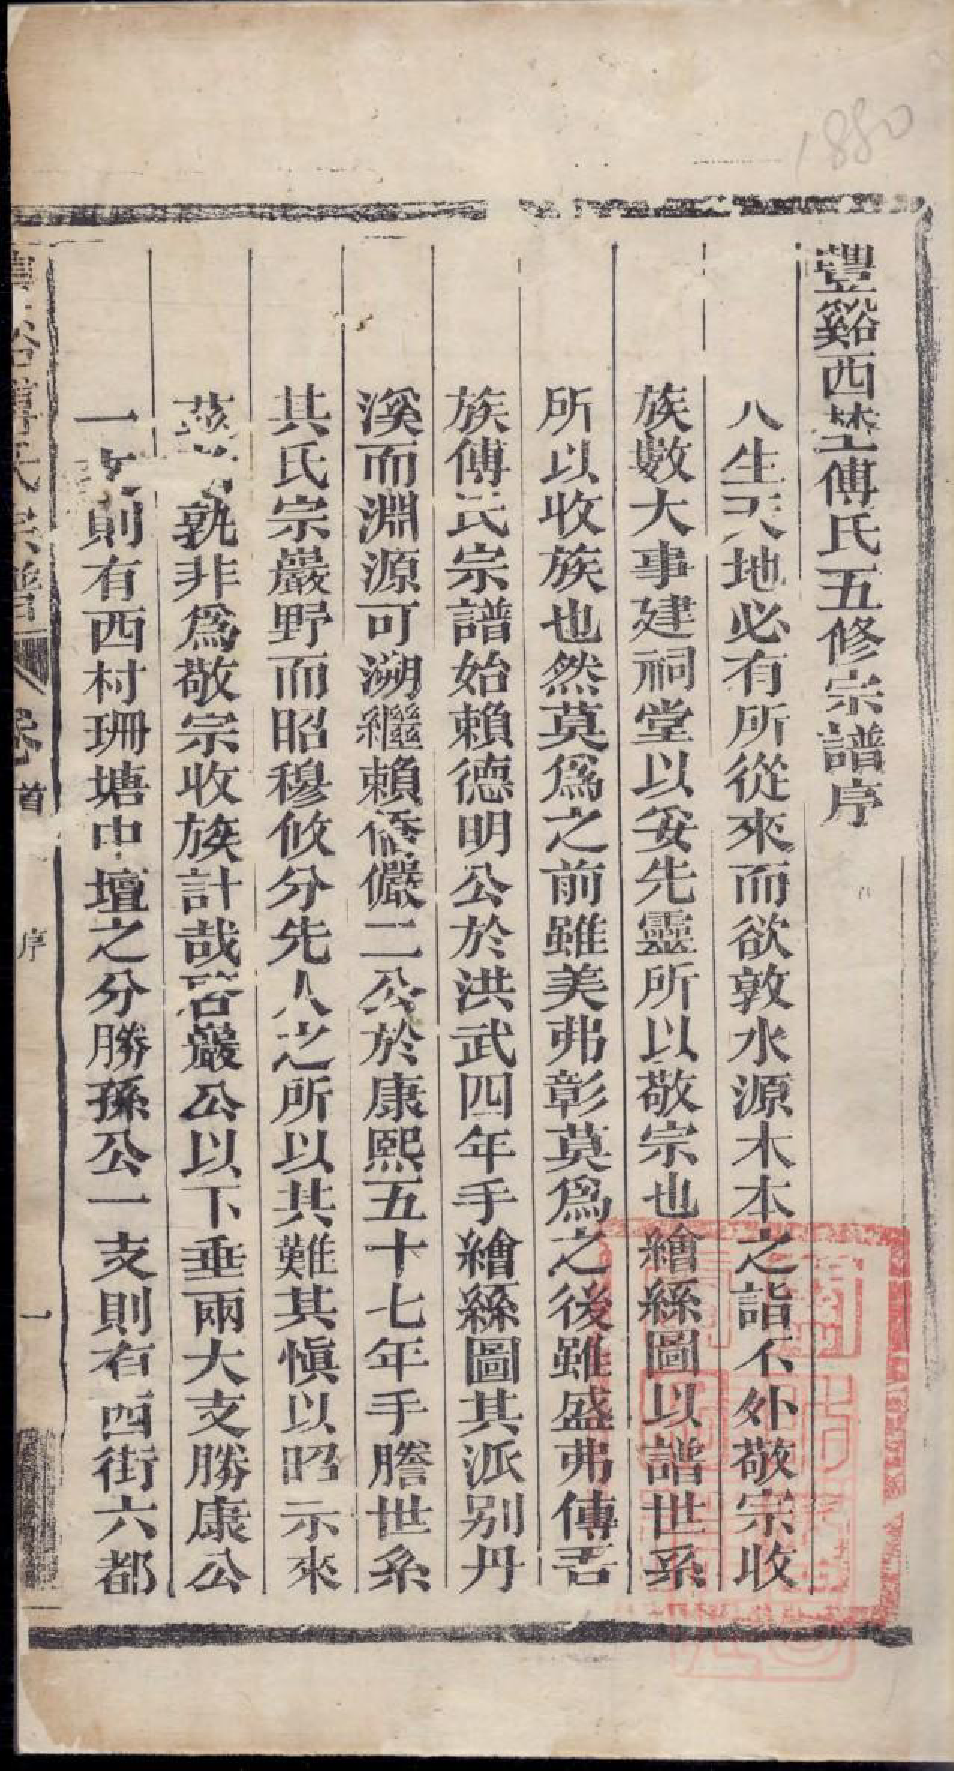 1880
豐谿西埜傅氏五修宗譜序
人生天地必有所從來而欲敦水源木本之詣不外敬宗收
族數大事建祠堂以妥先靈所以敬宗也繪絲圖以譜世系
所以收族也然莫爲之前雖美弗彰莫爲之後雖盛弗傳吾
族傅氏宗譜始賴德明公於洪武四年手繪絲圖其派别丹
溪而淵源可溯繼賴儒儼二公於康熙五十七年手謄世系
其氏宗嚴野而昭穆攸分先人之所以其難其愼以昭示來
孰非爲敬宗收族計哉若巖公以下垂兩大支勝康公
一支則有西村珊塘中壇之分勝孫公一支則有西街六都
傅氏宗譜 卷首 序 一